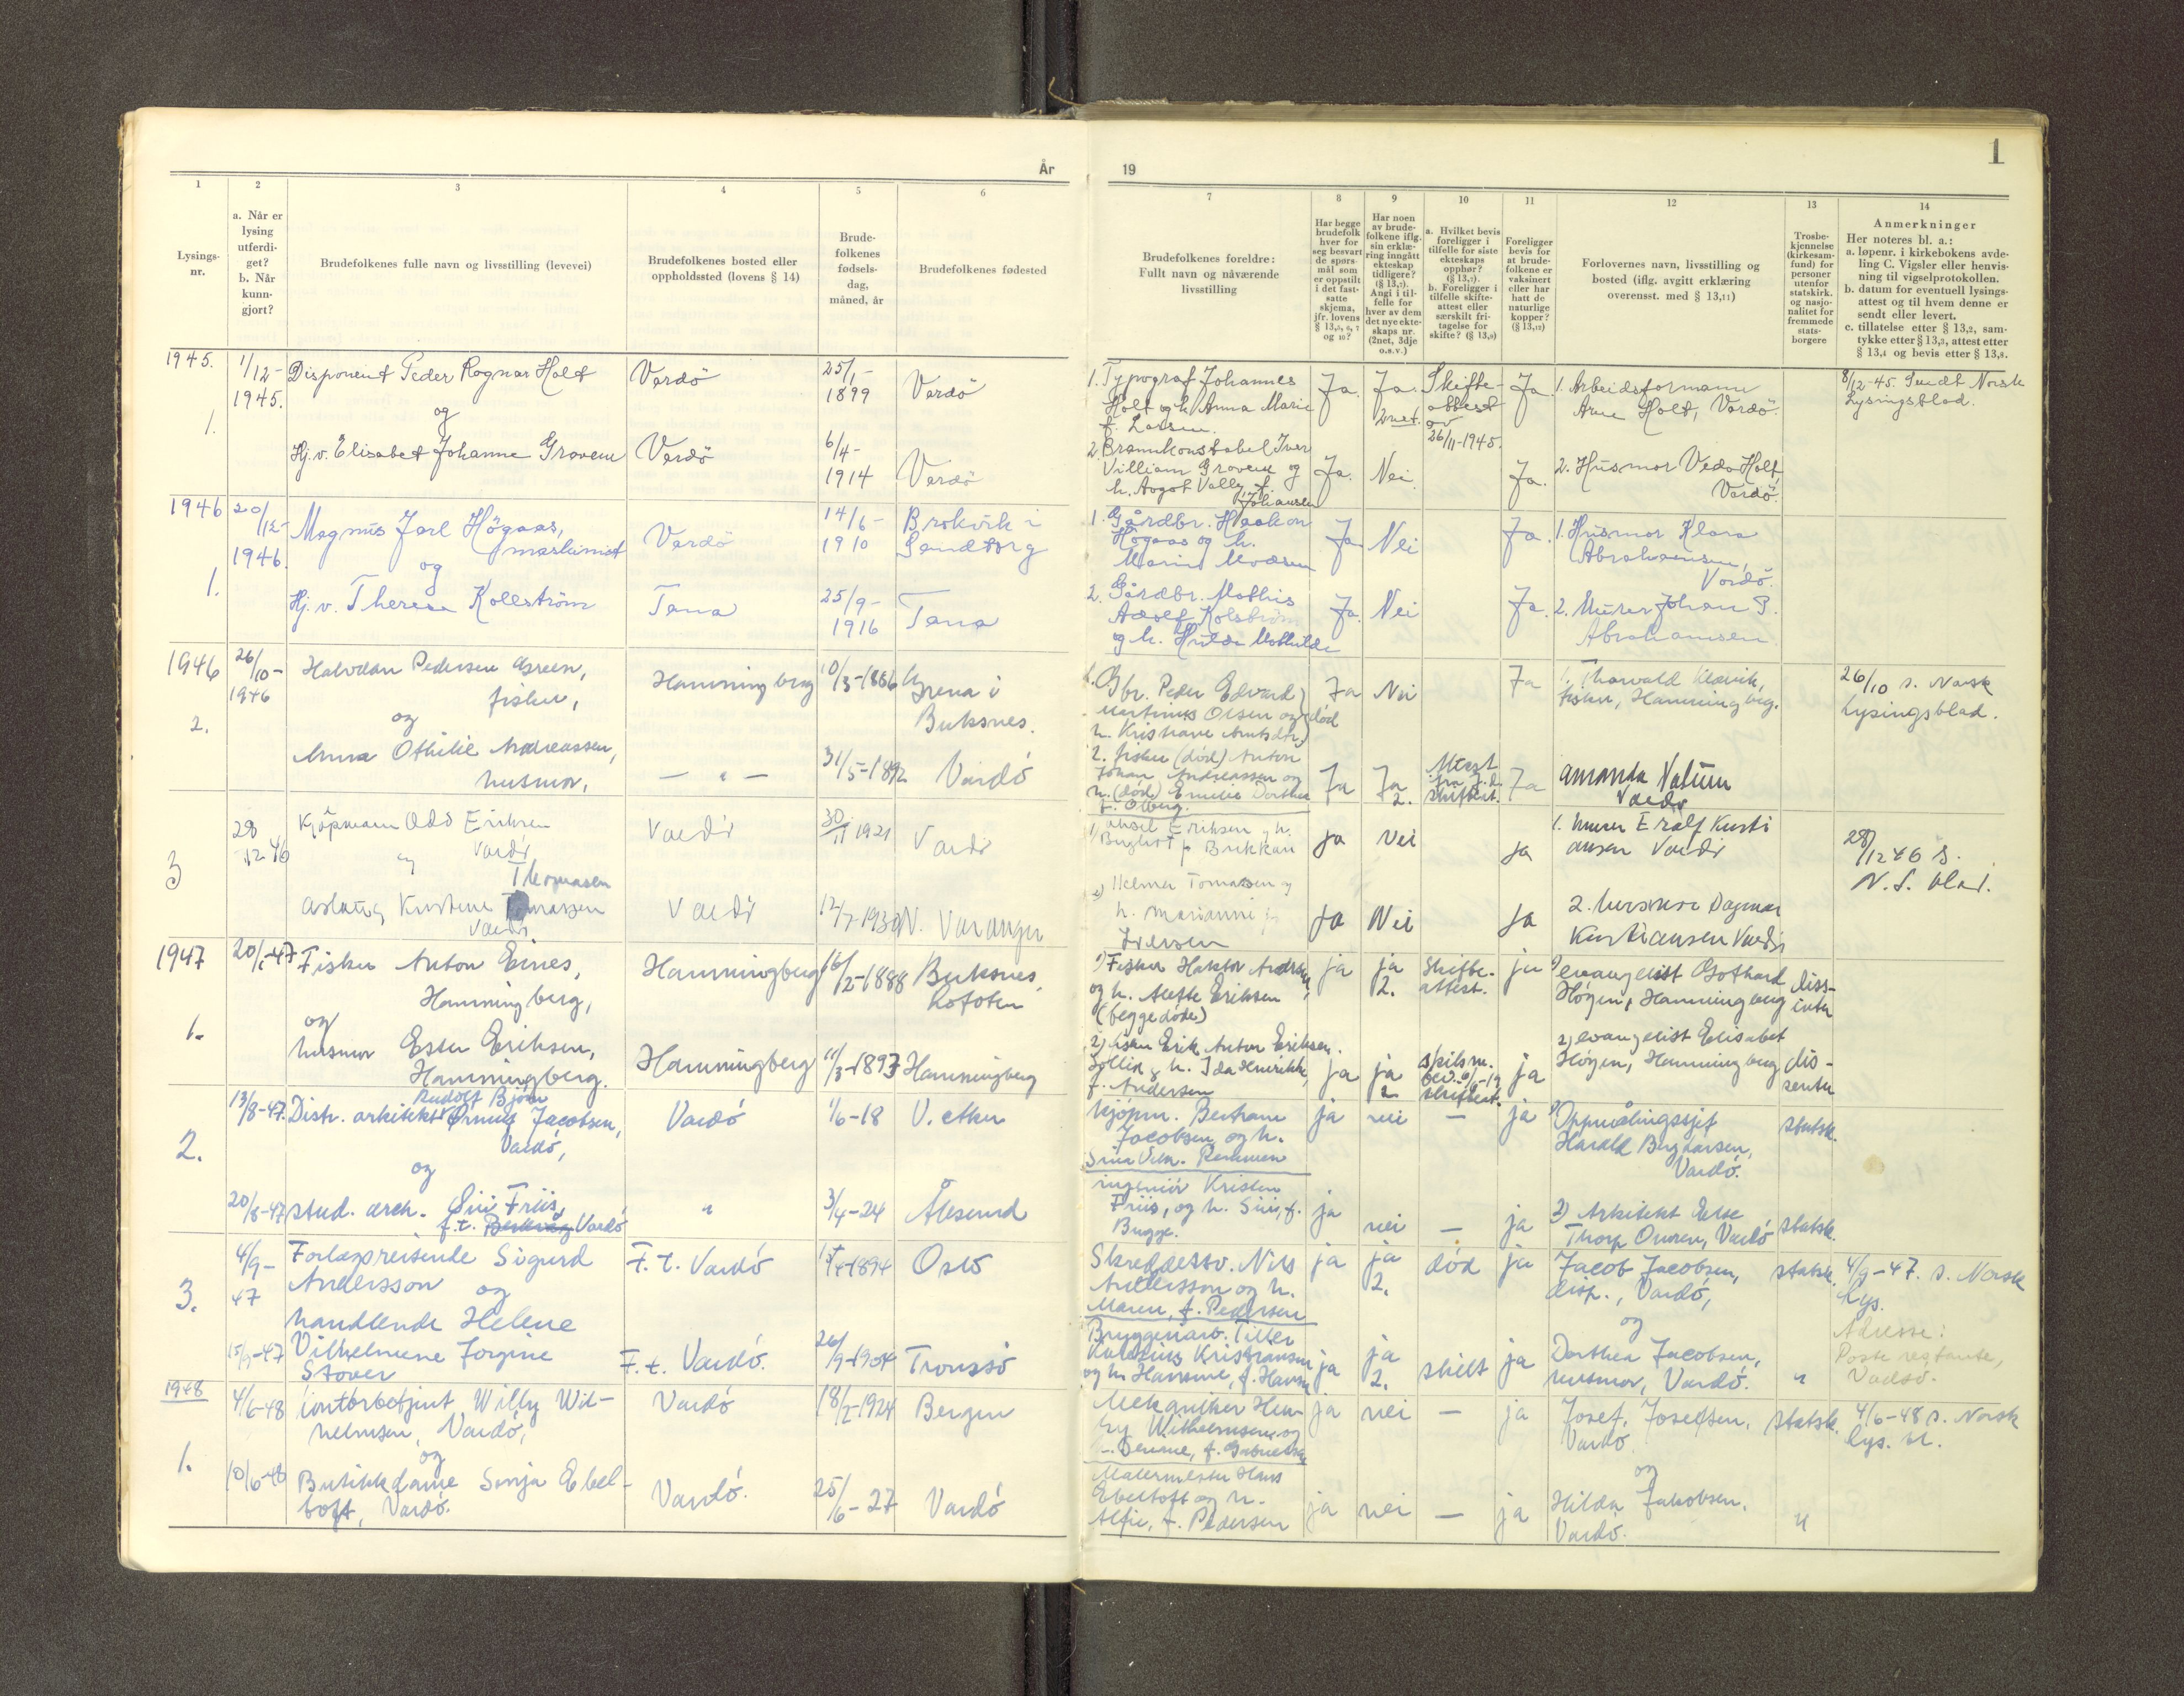 År
19
1
1
2
3
4
5
6
7
8
9
10
11
12
13
14
Lysings-
nr.
a. Når er
lysing
utferdi-
get?
b. Når
kunn-
gjort?
Brudefolkenes fulle navn og livsstilling (levevei)
Brudefolkenes bosted eller
oppholdssted (lovens § 14)
Brude-
folkenes
fødsels-
dag,
måned, år
Brudefolkenes fødested
Brudefolkenes foreldre:
Fullt navn og nåværende
livsstilling
Har begge
brudefolk
hver for
seg besvart
de spørs-
mål som
er oppstilt
i det fast-
satte
skjema,
jfr. lovens
§ 13,5, 6, 7
og 10?
Har noen
av brude-
folkene iflg.
sin erklæ-
ring inngått
ekteskap
tidligere?
(§ 13,7).
Angi i til-
felle for
hver av dem
det nye ekte-
skaps nr.
(2net, 3dje
o.s.v.)
a. Hvilket bevis
foreligger i
tilfelle for siste
ekteskaps
opphør?
(§ 13,7).
b. Foreligger i
tilfelle skifte-
attest eller
særskilt fri-
tagelse for
skifte? (§ 13,9)
Foreligger
bevis for
at brude-
folkene er
vaksinert
eller har
hatt de
naturlige
kopper?
(§ 13,12)
Forlovernes navn, livsstilling og
bosted (iflg. avgitt erklæring
overensst. med § 13,11)
Trosbe-
kjennelse
(kirkesam-
fund) for
personer
utenfor
statskirk.
og nasjo-
nalitet for
fremmede
stats-
borgere
Anmerkninger
Her noteres bl. a.:
a. løpenr. i kirkebokens avde-
ling C. Vigsler eller henvis-
ning til vigselprotokollen.
b. datum for eventuell lysings-
attest og til hvem denne er
sendt eller levert.
c. tillatelse etter § 13,2, sam-
tykke etter § 13,3, attest etter
§ 13,4 og bevis etter § 13,8.
1945.
1.
1/12-
1945.
Disponent Peder Ragnar Holt
og
Hj.v. Elisabet Johanne Gravem
Vardö
Vardö
25/1-
1899
6/4-
1914
Vardö
Vardö
1. Typograf Johannes
Holt og h. Anna Marie
f. Larsen.
2. Brannkonstabel Iver
Villiam Gravem og
h. Aagot Vally f.
Johansen
Ja.
Ja.
Ja.
2net.
Nei
Skifte-
attest
av
26/11-1945.
Ja.
Ja.
1. Arbeidsformann
Arne Holt, Vardö.
2. Husmor Veda Holt,
Vardö.
8/12-45. Sendt Norsk
Lysingsblad.
1946
1.
20/12-
1946.
Magnus Jarl Högaas,
maskinist
og
Hj.v. Therese Kollström
Vardö
Tana
14/6-
1910
25/9-
1916
Brokvik i
Sandtorg
Tana
1. Gårdbr. Haakon
Högaas og h.
Marie
2. Gårdbr. Mathis
Adolf Kolström
og h. Hulda Mathilde
Ja
Ja.
Nei
Nei
Ja.
Ja.
1. Husmor Klara
Abrahamsen,
Vardö.
2. Murer Johan P.
Abrahamsen
1946
2.
26/10-
1946
Halvdan Pedersen Green,
fisker,
og
Anna Othilie Andreassen,
husmor,
Hamningberg
— " —
10/3-1886
31/5-1892
Grena i
Buksnes.
Vardö
1. Gbr. Peder Edvard
Martinus Olsen og (død
h. Kristiane Antsdtr.)
2. fisker (død) Anton
Johan Andreassen og
h. (død) Emelie Dorthea
f. Olberg.
Ja
Ja
Nei
Ja
2.
skifteat.
Ja
Ja
1. Thorvald Klævik,
fisker, Hamningberg.
Amanda Valum
Vardø
26/10 s. Norsk
Lysingsblad.
3
28
12 46
Kjöpmann Odd Eriksen
og Vardö
Thomasen
Aslaug Kirstine
Vardö
Vardö
Vardö
30/11 1921
12/7-1930
Vardö
N. Varanger
1) Aksel Eriksen og h.
Birgit f. Brekkan
2) Helmer Tomassen og
h. Marianne f.
Iversen
Ja
Ja
Nei
Nei
Ja
Ja
1. Murer Eralf Kristi
ansen Vardö
2. husmor Dagmar
Kristiansen Vardö
28/12 46 s.
N. L. blad.
1947
1.
20/1-47
Fisker Anton Eines,
Hamningberg,
og
husmor Ester Eriksen,
Hamningberg.
Hamningberg
Hamningberg
16/2-1888
11/3-1897
Buksnes,
Lofoten
Hamningberg
1) Fisker Haktor Andersen
og h. Alette Eriksen
(begge døde)
2) fisker Erik Anton Eriksen
og h. Ida Henrikke,
f. Andersen
ja
ja
ja
2.
ja
2
Skifte-
attest.
skifteat.
ja
ja
1) evangelist Gothard
Høgen, Hamningberg
2) evangelist Elisabet
Høgen, Hamningberg
diss-
enter
dis-
senter
2.
13/8-47.
20/8-47
Rudolf Bjørn
Distr. arkitekt Ørnulf Jacobsen,
Vardö,
og
stud. arch. Siri Friis,
f.t. Vardö
Vardö
"
1/6-18
3/4-24
V. Aker
Ålesund
Kjöpm. Berthane
Jacobsen og h.
ingeniör Kristen
Friis, og h. Siri, f.
Bugge.
ja
ja
nei
nei
—
—
ja
ja
1) Oppmålingssjef
Harald Bryhnsen,
Vardö.
2) Arkitekt Else
Thorp Omren, Vardö
statsk.
statsk.
3.
4/9-
47
15/9-47
Forlagsreisende Sigurd
Andersson
og
handlende Helene
Vilhelmine Jorgine
Stover
F.t. Vardö
F.t. Vardö.
26/9-1904
Oslo
Tromsö
Skreddersv. Nils
Andersson og h.
Maren, f. Pedersen
Bryggeriarb. Tiller
Kristiansen
og h. Hansine, f. Hansen
ja
ja
ja
2.
ja
2.
död
skilt
ja
ja
Jacob Jacobsen,
disp., Vardö,
og
Dorthea Jacobsen,
husmor, Vardö.
statsk.
"
4/9-47. s. Norsk
Lys.
Adresse:
Poste restante,
Vadsö.
1948
1.
4/6-48
10/6-48
Kontorbetjent Willy Wil-
helmsen, Vardö,
og
Butikkdame Sonja Ebel-
toft, Vardö.
Vardö
Vardö.
18/2-1924
25/6-27
Bergen
Vardö
Mekaniker Hen-
ry Wilhelmsen og
Malermester Hans
Ebeltoft og h.
Alfie, f. Pedersen
ja
ja
nei
nei
—
—
ja
ja
Josef Josefsen,
Vardö.
og
Hilda Jakobsen,
Vardö.
statsk.
"
4/6-48 s. Norsk
lys. bl.